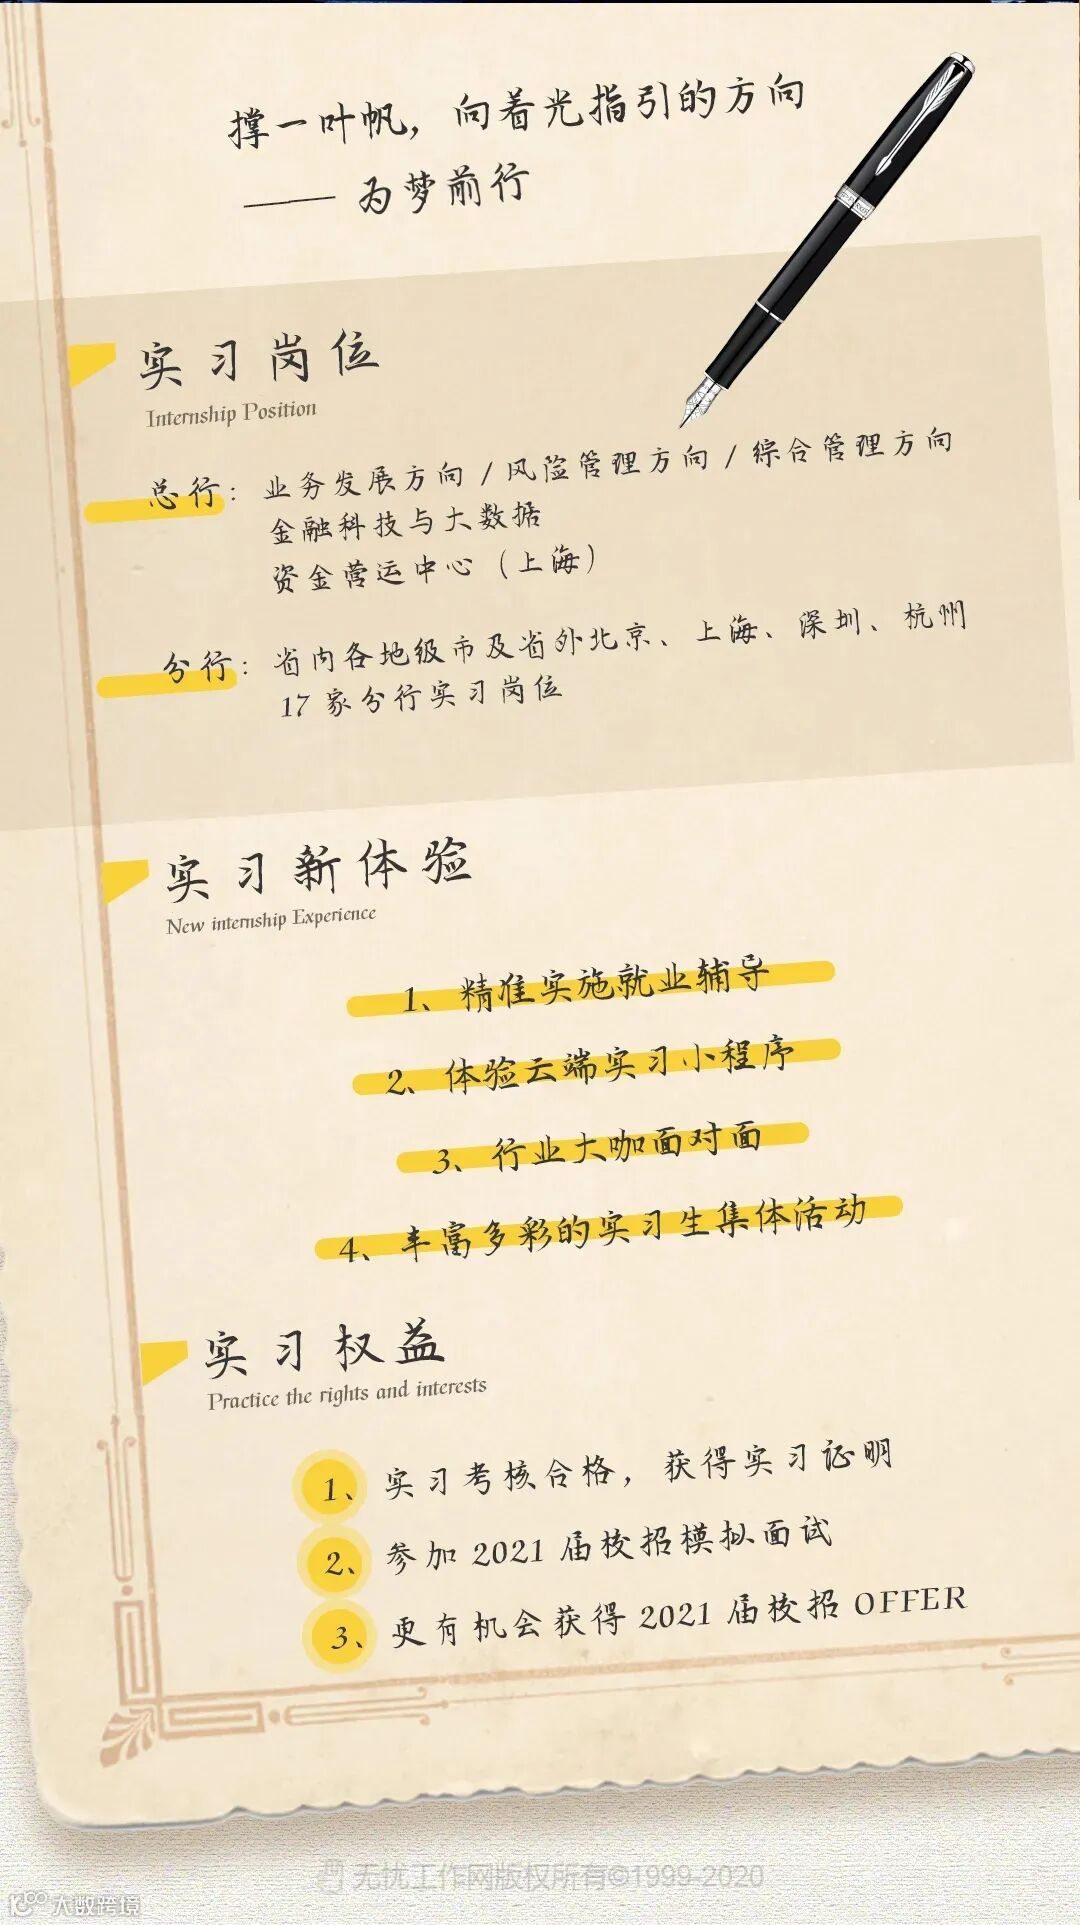 撑一叶帆，向着光指引的方向
—— 为梦前行
实习岗位
Internship Position
总行：业务发展方向 / 风险管理方向 / 综合管理方向
金融科技与大数据
资金营运中心（上海）
分行：省内各地级市及省外北京、上海、深圳、杭州
17 家分行实习岗位
实习新体验
New internship Experience
1、精准实施就业辅导
2、体验云端实习小程序
3、行业大咖面对面
4、丰富多彩的实习生集体活动
实习权益
Practice the rights and interests
1、实习考核合格，获得实习证明
2、参加 2021 届校招模拟面试
3、更有机会获得 2021 届校招 OFFER
无扰工作网版权所有©1999-2020
大数跨境